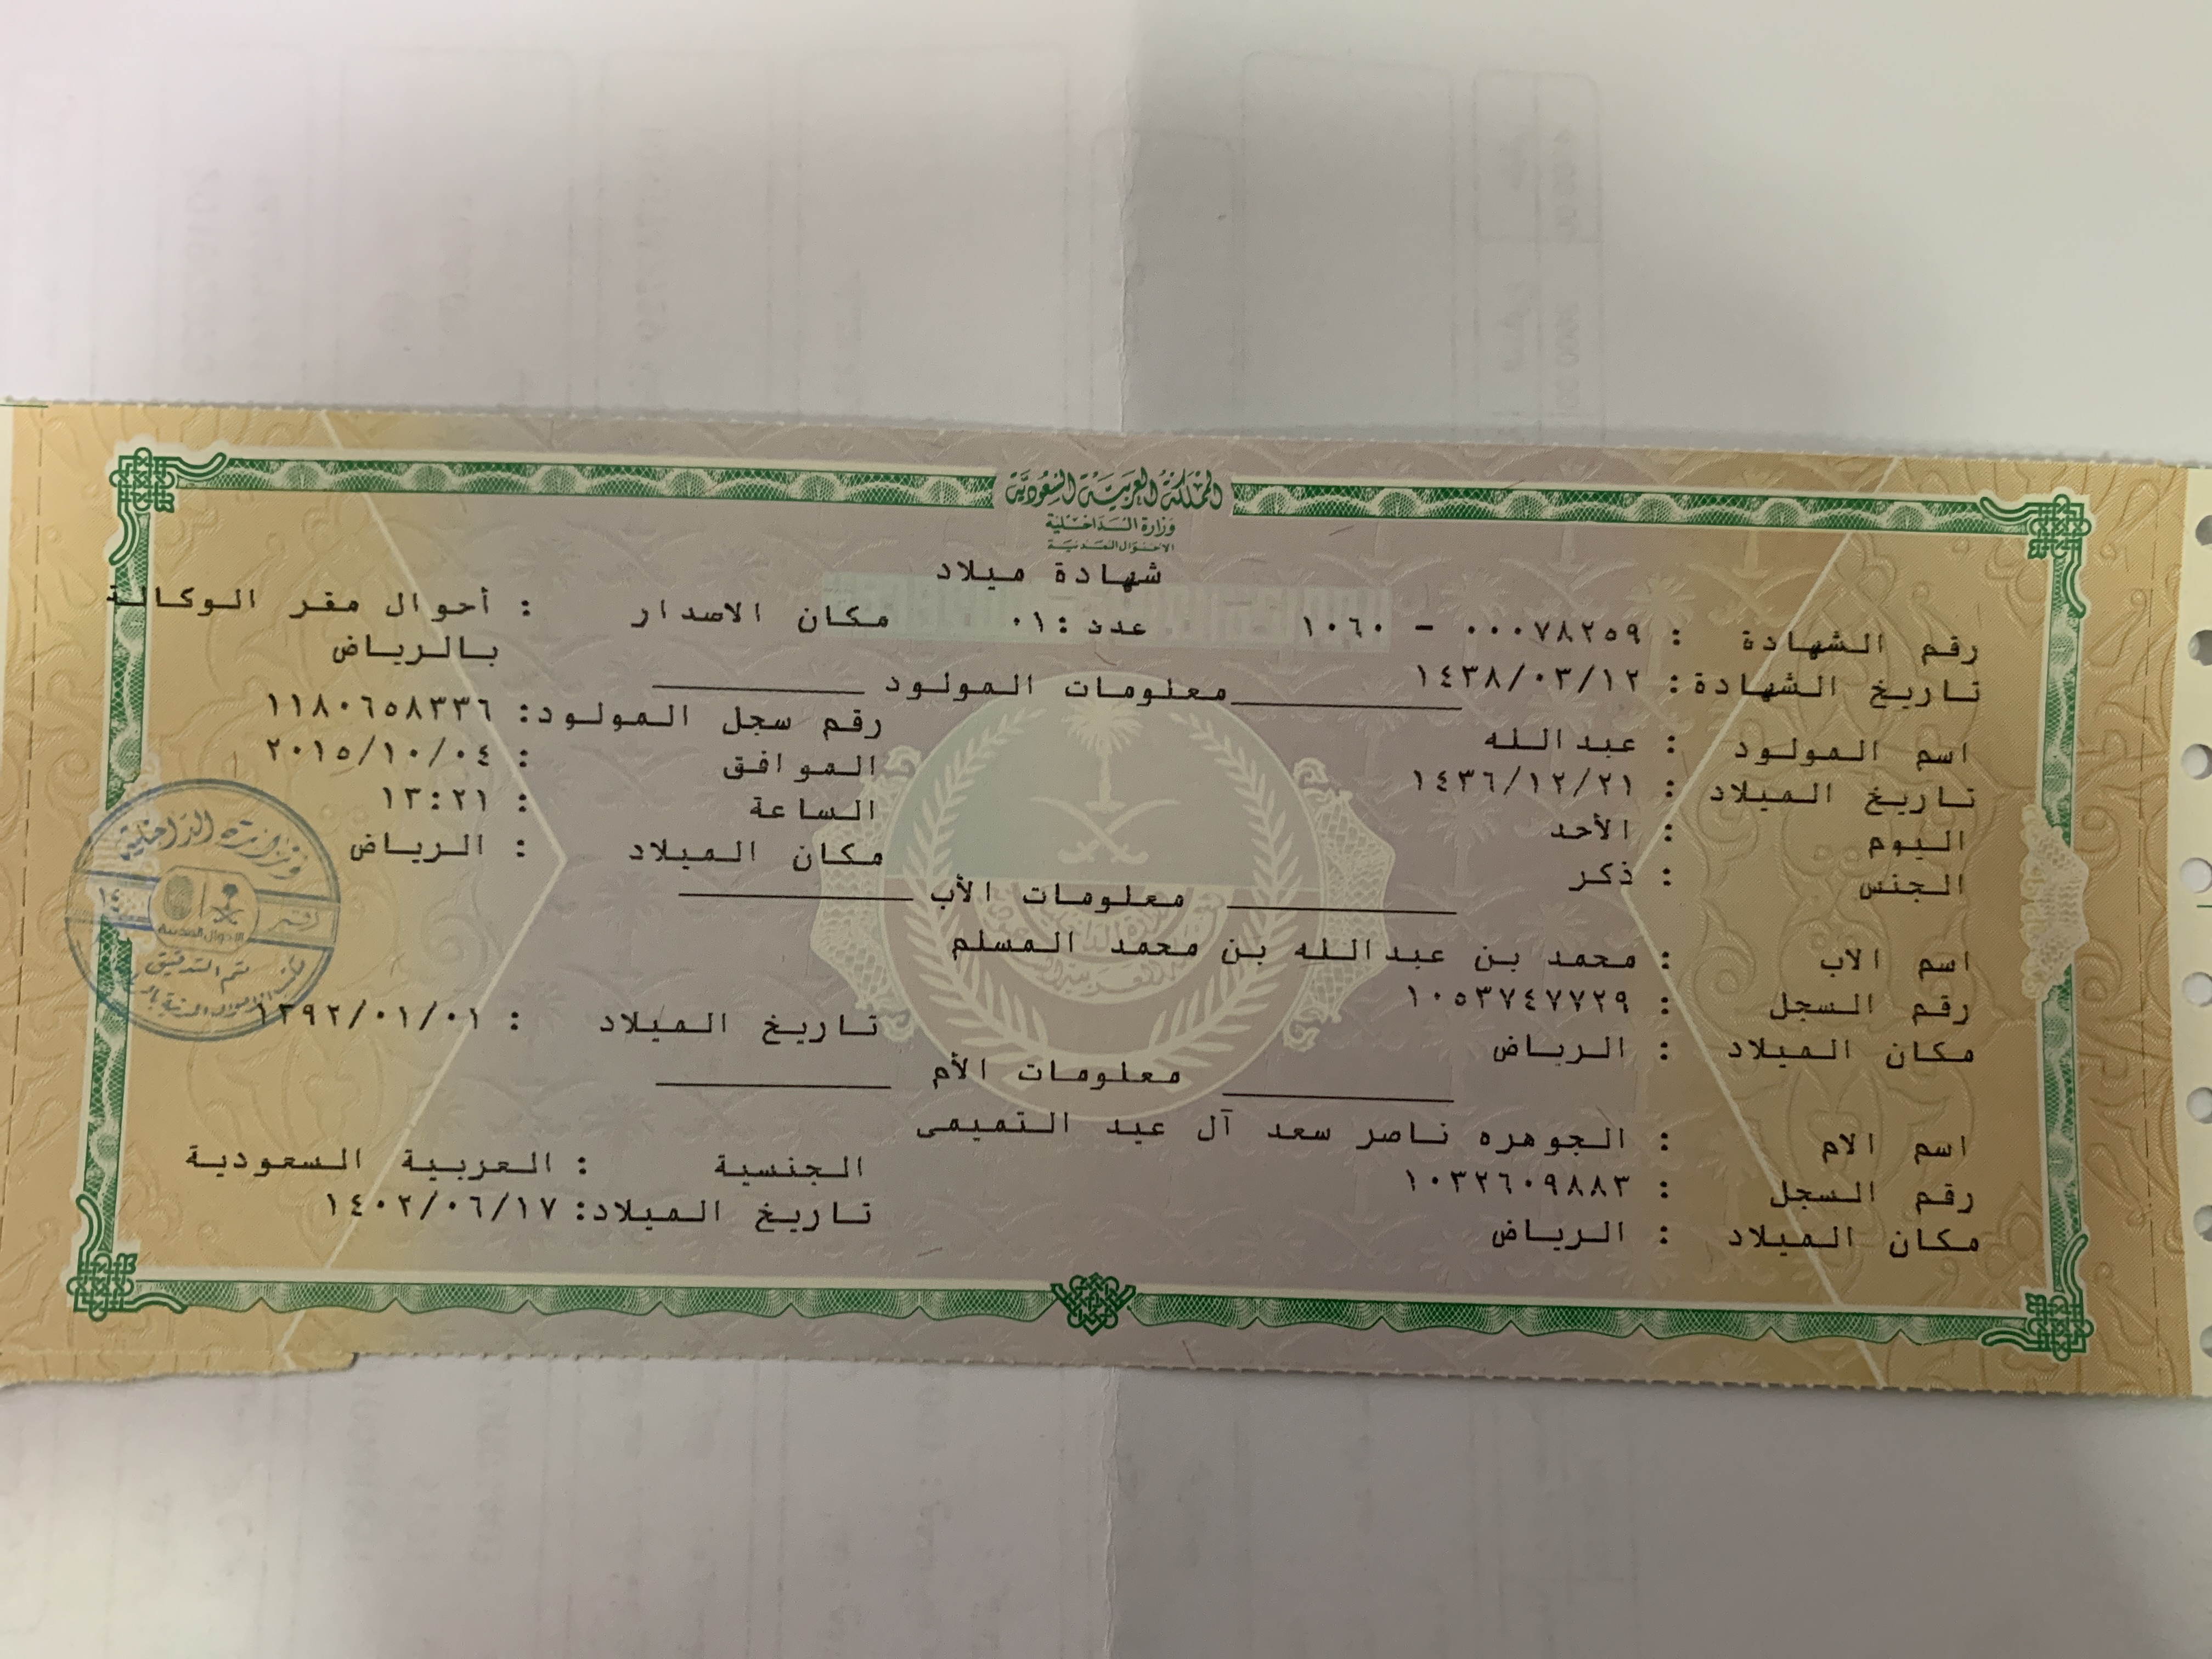 المملكة العربية السعودية
وزارة الداخلية
الأحوال المدنية
شهادة ميلاد
رقم الشهادة : ٠٠٠٧٨٢٥٩ - ١٠٦٠ عدد :٠١ مكان الاصدار : أحوال مقر الوكالة
بالرياض
تاريخ الشهادة: ١٤٣٨/٠٣/١٢
معلومات المولود
رقم سجل المولود: ١١٨٠٦٥٨٣٣٦
اسم المولود : عبدالله
الموافق : ٢٠١٥/١٠/٠٤
تاريخ الميلاد : ١٤٣٦/١٢/٢١
الساعة : ١٣:٢١
اليوم : الأحد
مكان الميلاد : الرياض
الجنس : ذكر
معلومات الأب
اسم الاب : محمد بن عبدالله بن محمد المسلم
رقم السجل : ١٠٥٣٧٤٧٧٢٩
تاريخ الميلاد : ١٣٩٢/٠١/٠١
مكان الميلاد : الرياض
معلومات الأم
اسم الام : الجوهره ناصر سعد آل عيد التميمى
الجنسية : العربية السعودية
رقم السجل : ١٠٣٢٦٠٩٨٨٣
تاريخ الميلاد: ١٤٠٢/٠٦/١٧
مكان الميلاد : الرياض
وزارة الداخلية
الأحوال المدنية
تم التدقيق